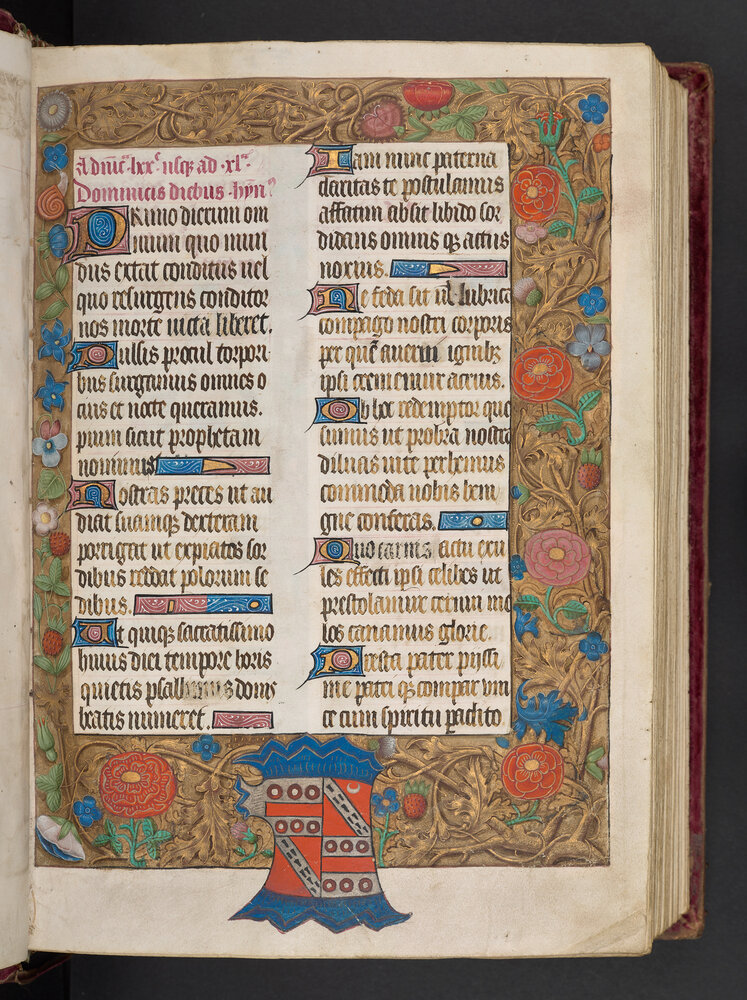 Ad nūc̄ lxx͛ usq; ad .xl.ͫ
Dominicis diebus .hyn̄
PRimo dierum om
nium quo mun
dus extat conditus uel
quo resurgens conditor
nos morte uicta liberet.
Pulsis procul torpori
bus surgamus omnes o
cius et nocte queramus.
pium sicut prophetam
nouimus
Nostras preces ut au
diat suamq; dexteram
porrigat ut expiatos sor
dibus reddat polorum se
dibus.
Ut quiq; sacratissimo
huius diei tempore horis
quietis psallimus donis
beatis muneret.
Iam nunc paterna
claritas te postulamus
affatim absit libido sor
didans omnis q; actus
noxius.
Ne feda sit ul' lubrica
compago nostri corporis
per quē auerni ignib;
ipsi crememur acrius.
Ob hec redemptor que
sumus ut probra nostra
diluas uite perhennis
commoda nobis beni
gne conferas.
Quo carnis actu exu
les effecti ipsi celibes ut
prestolamur cernui me
los canamus glorie.
Presta pater pyssi
me patri q; compar vni
ce cum spiritu paclito